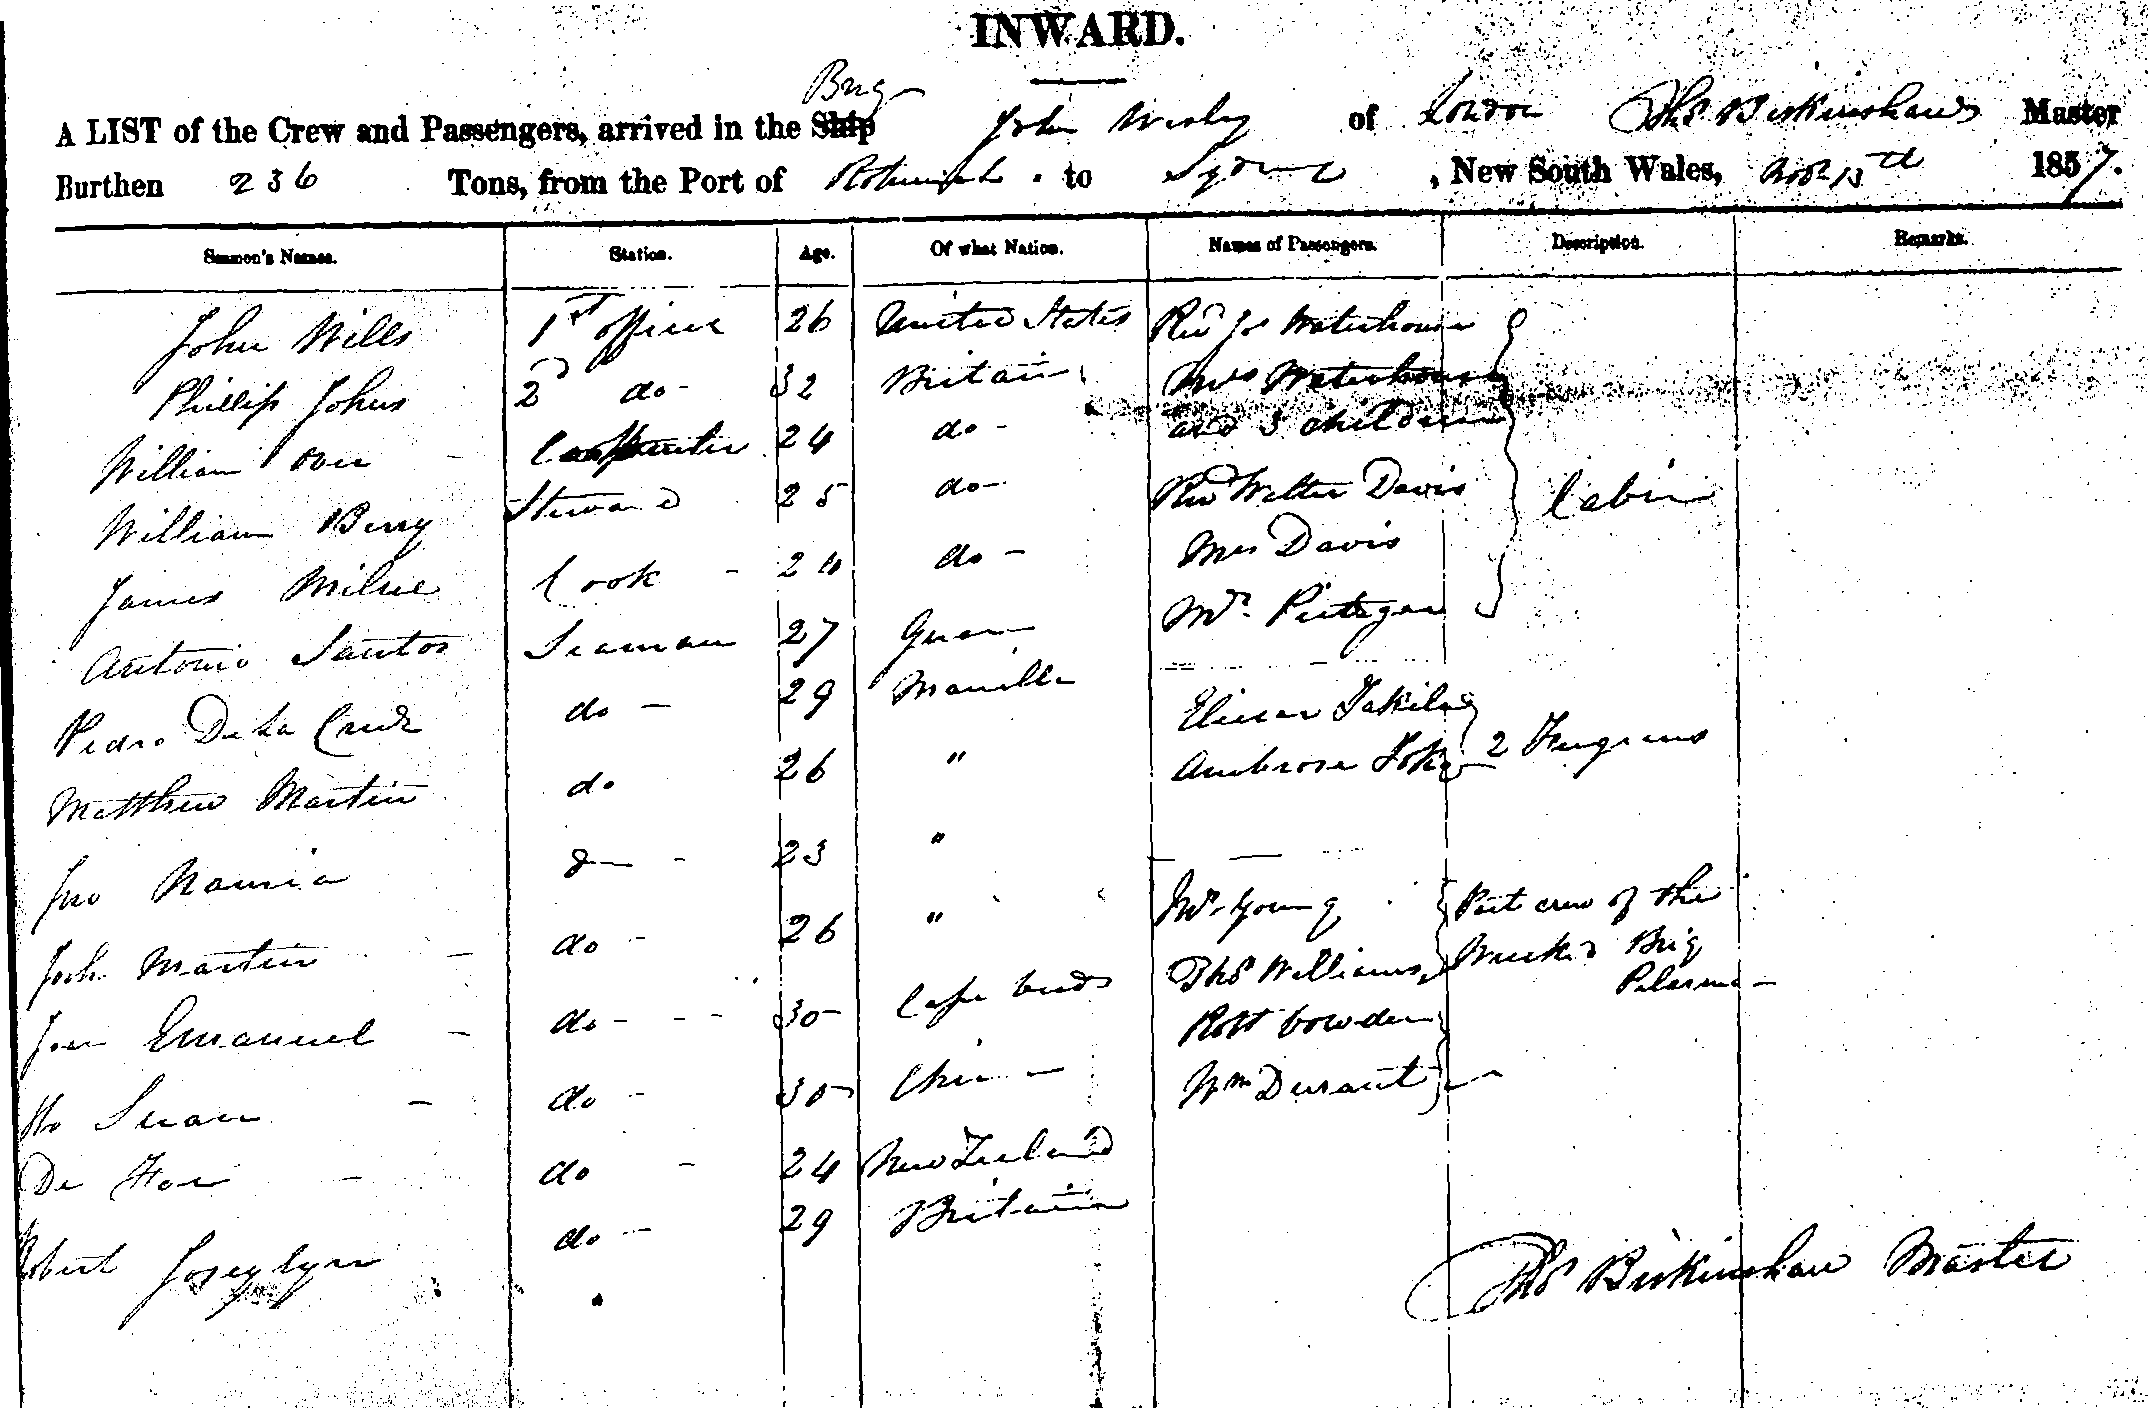 INWARD.
Brig
A LIST of the Crew and Passengers, arrived in the Ship John Wesley of London Thos Birkinshaw Master
Burthen 236 Tons, from the Port of to Sydney, New South Wales, Novr 13th 1857.
Seamen's Names. Station. Age. Of what Nation. Names of Passengers. Description. Remarks.
John Wills 1st officer 26 United States Revd Jos Waterhouse
Phillip Johns 2d do - 32 Britain Mrs Waterhouse
William Carpenter 24 do - and 5 children
William Berry Steward 25 do - Revd Walter Davis Cabin
James Milne Cook - 24 do - Mrs Davis
Antonio Santos Seaman 27 Guam Mr.
Pedro De La Cruz do - 29 Manilla
Matthew Martin do 26 " Ambrose 2 Feegeeans
Jno do - 23 "
Josh Martin - do - 26 " Mr. Young Part crew of the
Emanuel - do - - - 30 - Cape Verds Thos Williams Wrecked Brig
- do - 30 - China Robt Cowden
De - do - 24 New Zealand Wm Durant
Robert Joseylyn do - 29 Britain
Thos Birkinshaw Master